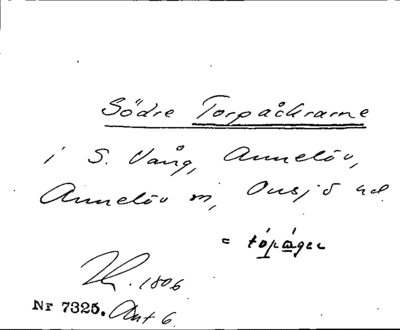 Södre Torpåkrarne
i S. Vång, Annelöv,
Annelöv m, Onsjö hd
= tópágen
1806
Nr 7325. Akt 6.